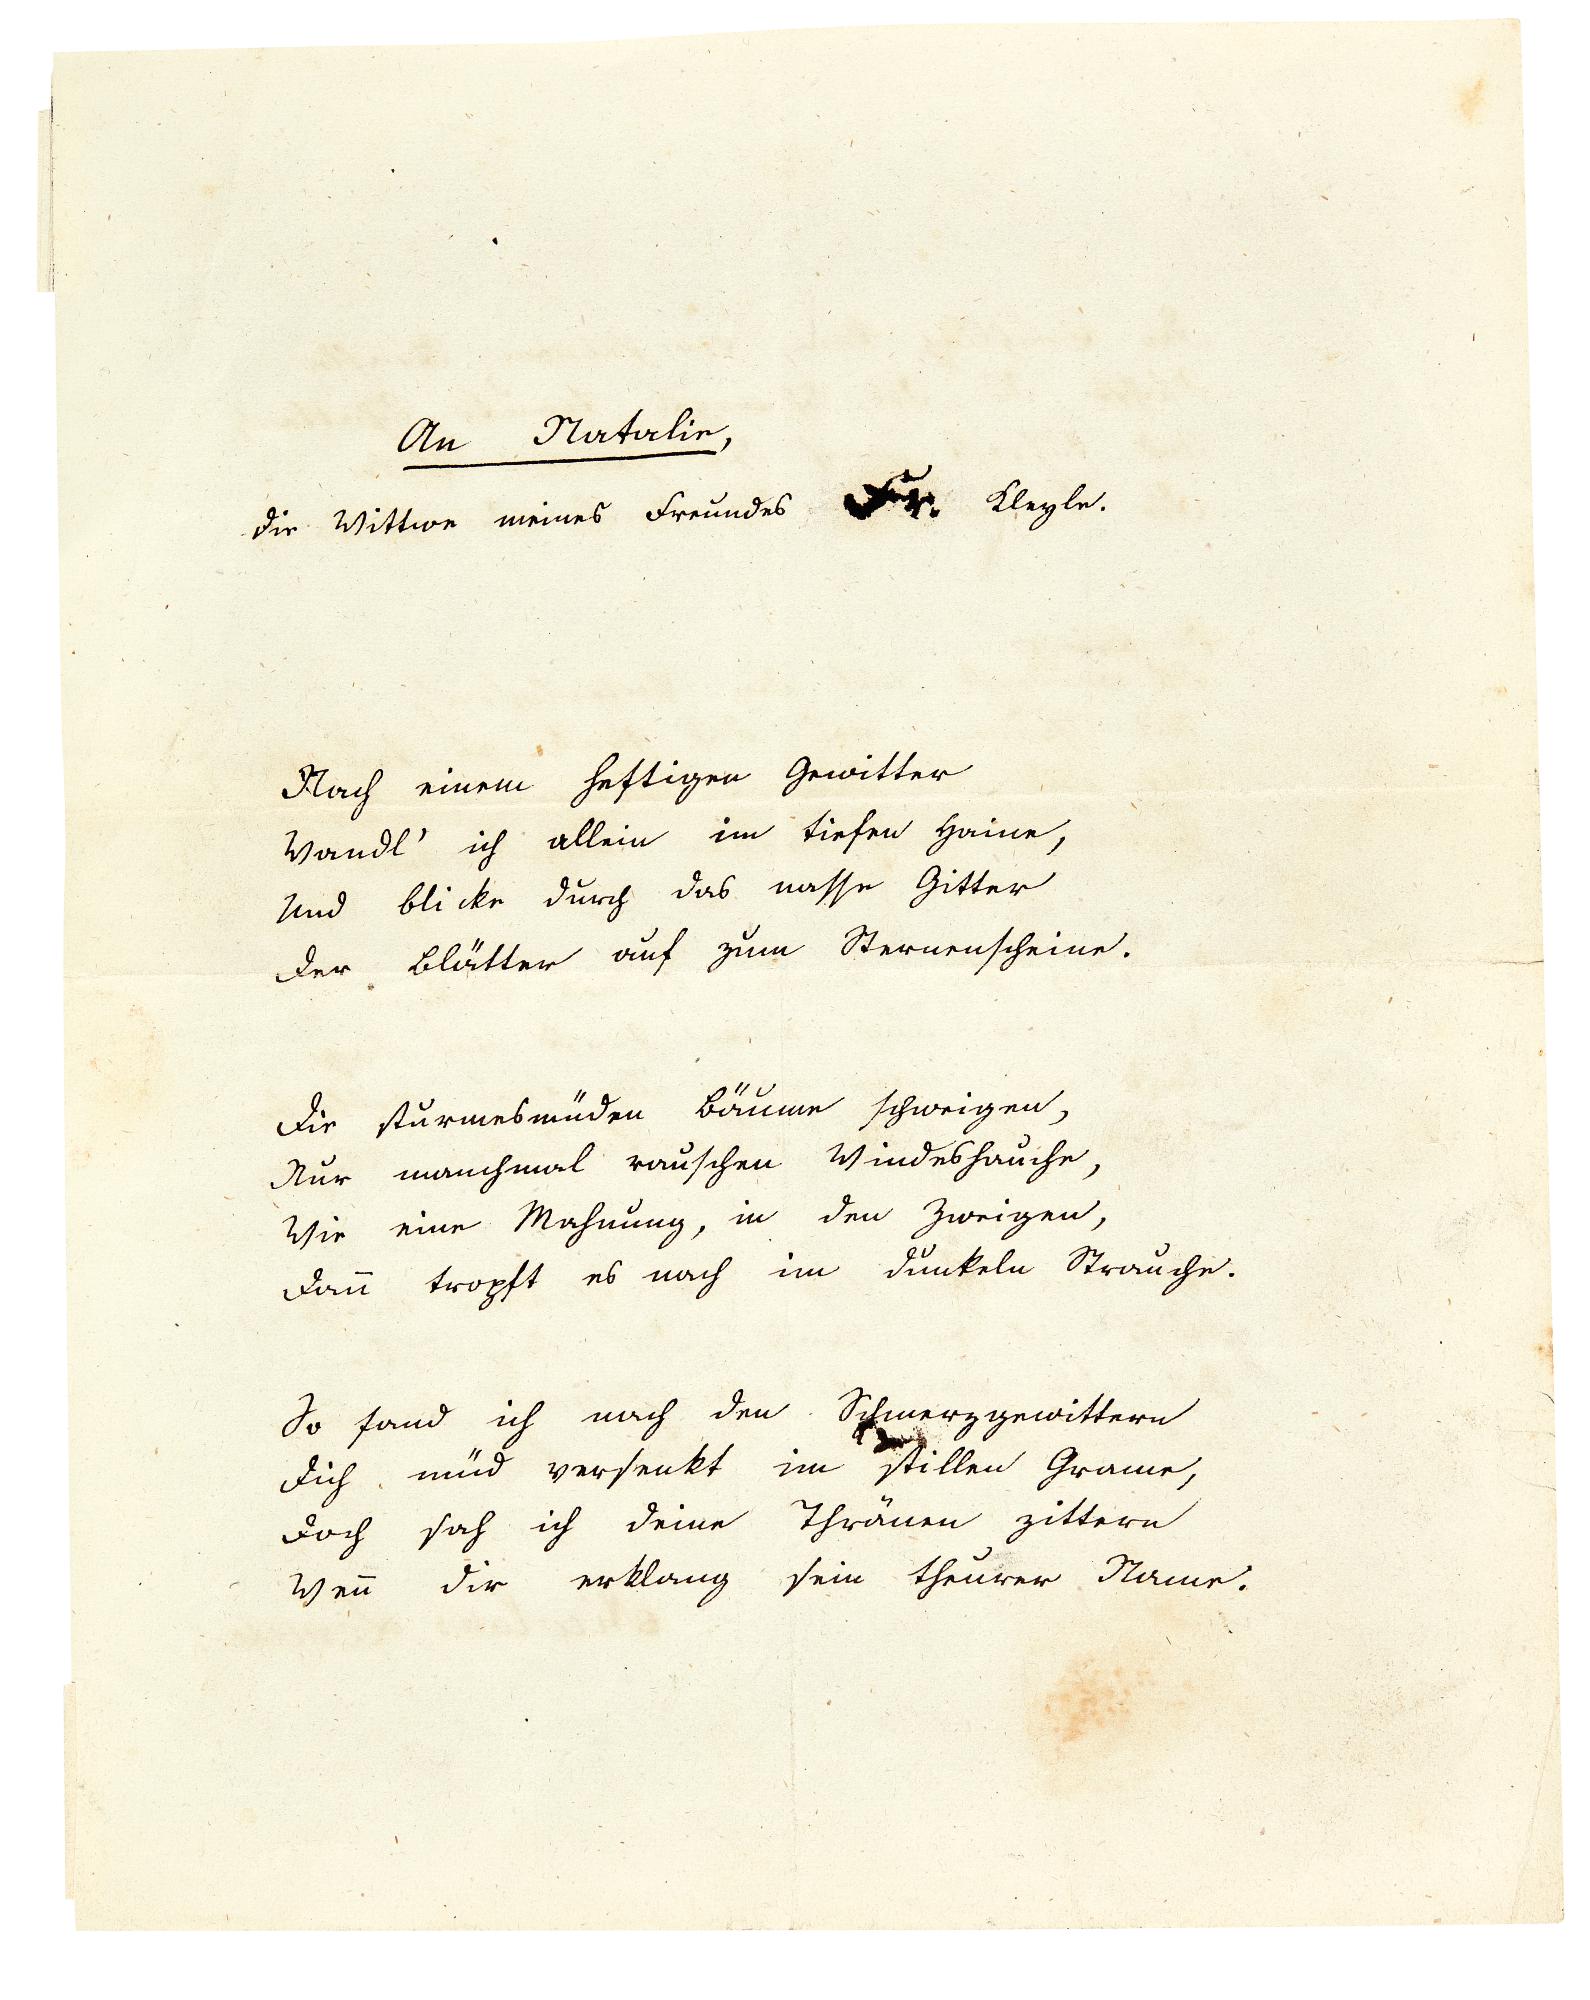 An Natalie,
die Wittwe meines Freundes Fr. Kleyle.
Nach einem heftigen Gewitter
Wandl' ich allein im tiefen Haine,
Und blicke durch das nasse Gitter
Der Blätter auf zum Sternenscheine.
Die sturmesmüden Bäume schweigen,
Nur manchmal rauschen Windeshauche,
Wie eine Mahnung, in den Zweigen,
Dañ tropft es nach im dunkeln Strauche.
So fand ich nach den Schmerzgewittern
Dich müd versenkt im stillen Grame,
Doch sah ich deine Thränen zittern
Weñ dir erklang sein theurer Name.